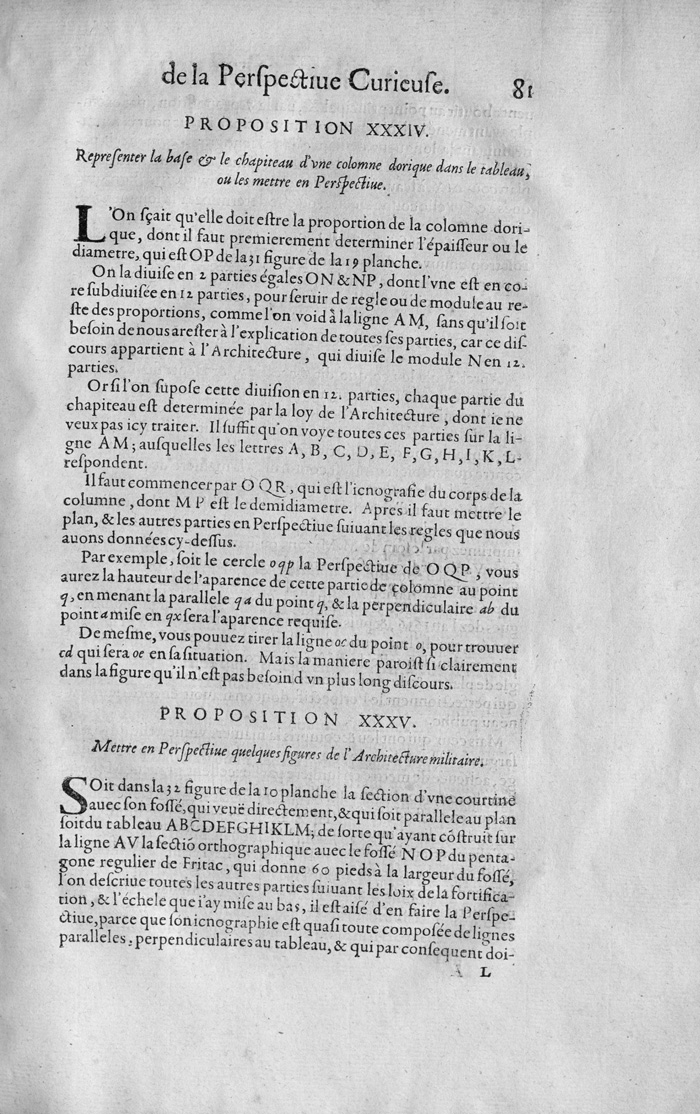 de la Perſpectiue Curieuſe. 81
PROPOSITION XXXIV.
Repreſenter la baſe & le chapiteau d'vne colomne dorique dans le tableau,
ou les mettre en Perſpectiue.
L'On ſçait qu'elle doit eſtre la proportion de la colomne dori-
que, dont il faut premierement determiner l'épaiſſeur ou le
diametre, qui eſt OP de la 31 figure de la 19 planche.
On la diuiſe en 2 parties égales ON & NP, dont l'vne eſt en co-
re ſubdiuiſée en 12 parties, pour ſeruir de regle ou de module au re-
ſte des proportions, comme l'on void à la ligne AM, ſans qu'il ſoit
beſoin de nous areſter à l'explication de toutes ſes parties, car ce diſ-
cours appartient à l'Architecture, qui diuiſe le module N en 12.
parties.
Or ſi l'on ſupoſe cette diuiſion en 12. parties, chaque partie du
chapiteau eſt determinée par la loy de l'Architecture, dont ie ne
veux pas icy traiter. Il ſuffit qu'on voye toutes ces parties ſur la li-
gne AM; auſquelles les lettres A, B, C, D, E, F, G, H, I, K, L-
reſpondent.
Il faut commencer par OQR, qui eſt l'icnografie du corps de la
columne, dont MP eſt le demidiametre. Aprés il faut mettre le
plan, & les autres parties en Perſpectiue ſuiuant les regles que nous
auons données cy-deſſus.
Par exemple, ſoit le cercle oqp la Perſpectiue de OQP, vous
aurez la hauteur de l'aparence de cette partie de colomne au point
q, en menant la parallele qa du point q, & la perpendiculaire ab du
point a miſe en qx ſera l'aparence requiſe.
De meſme, vous pouuez tirer la ligne oc du point o, pour trouuer
cd qui ſera oe en ſa ſituation. Mais la maniere paroiſt ſi clairement
dans la figure qu'il n'eſt pas beſoin d vn plus long diſcours.
PROPOSITION XXXV.
Mettre en Perſpectiue quelques figures de l'Architecture militaire.
SOit dans la 32 figure de la 10 planche la ſection d'vne courtine
auec ſon foſſé, qui veuë directement, & qui ſoit parallele au plan
ſoit du tableau ABCDEFGHIKLM, de ſorte qu'ayant cõſtruit ſur
la ligne AV la ſectiõ orthographique auec le foſſé NOP du penta-
gone regulier de Fritac, qui donne 60 pieds à la largeur du foſſé,
l'on deſcriue toutes les autres parties ſuiuant les loix de la fortifica-
tion, & l'échele que i'ay miſe au bas, il eſt aiſé d'en faire la Perſpe-
ctiue, parce que ſon icnographie eſt quaſi toute compoſée de lignes
paralleles, perpendiculaires au tableau, & qui par conſequent doi-
L